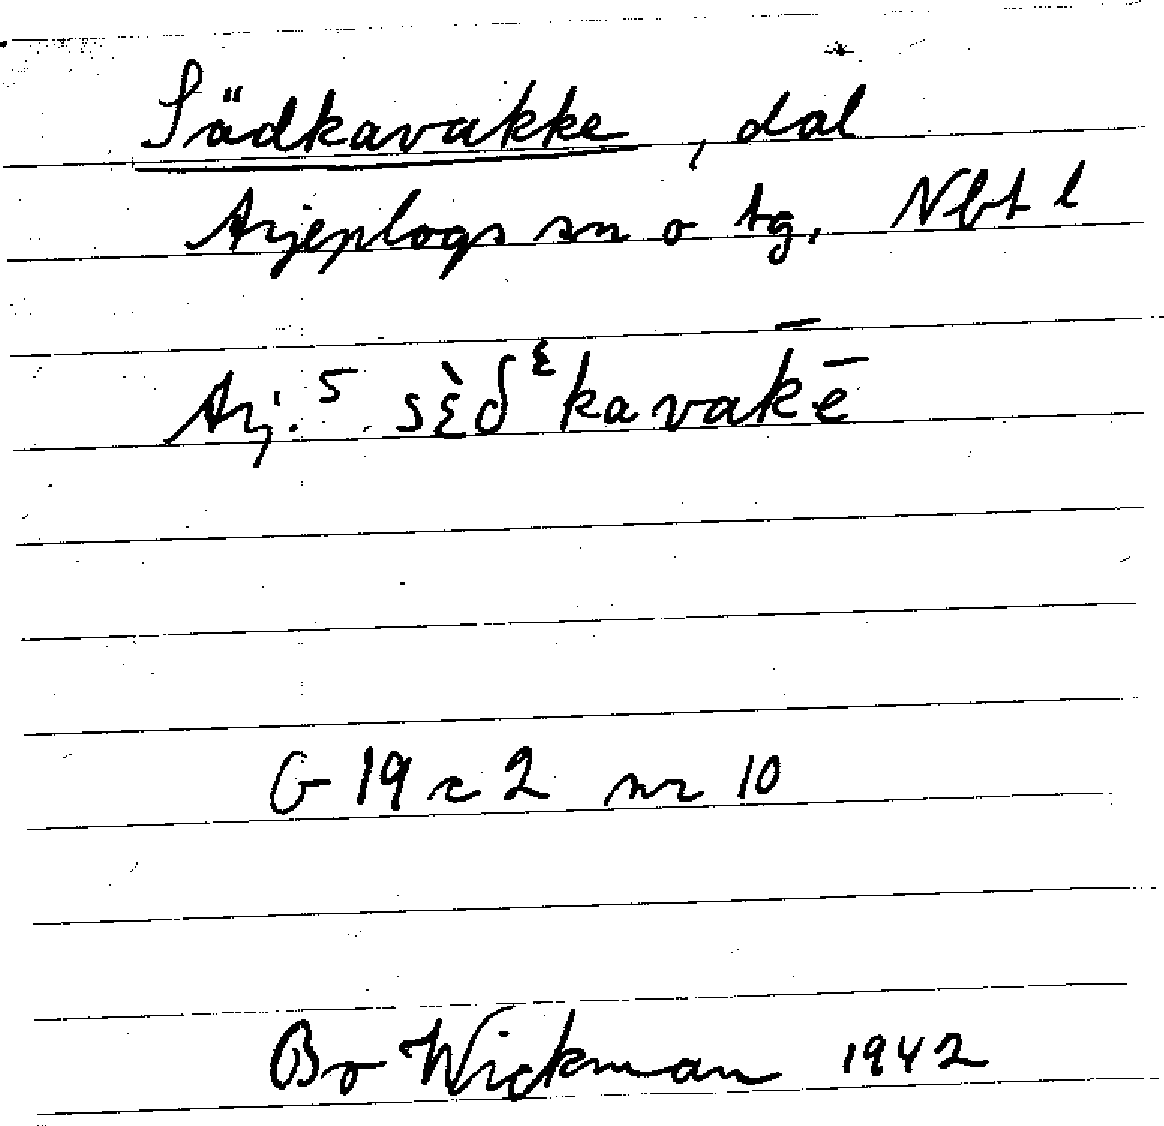 Sädkavakke, dal
Arjeplogs sn o tg, Nbt l
Arj.⁵ sɛ̀δᵋkavak̄ē
G 19 c 2 nr 10
Bo Wickman 1942